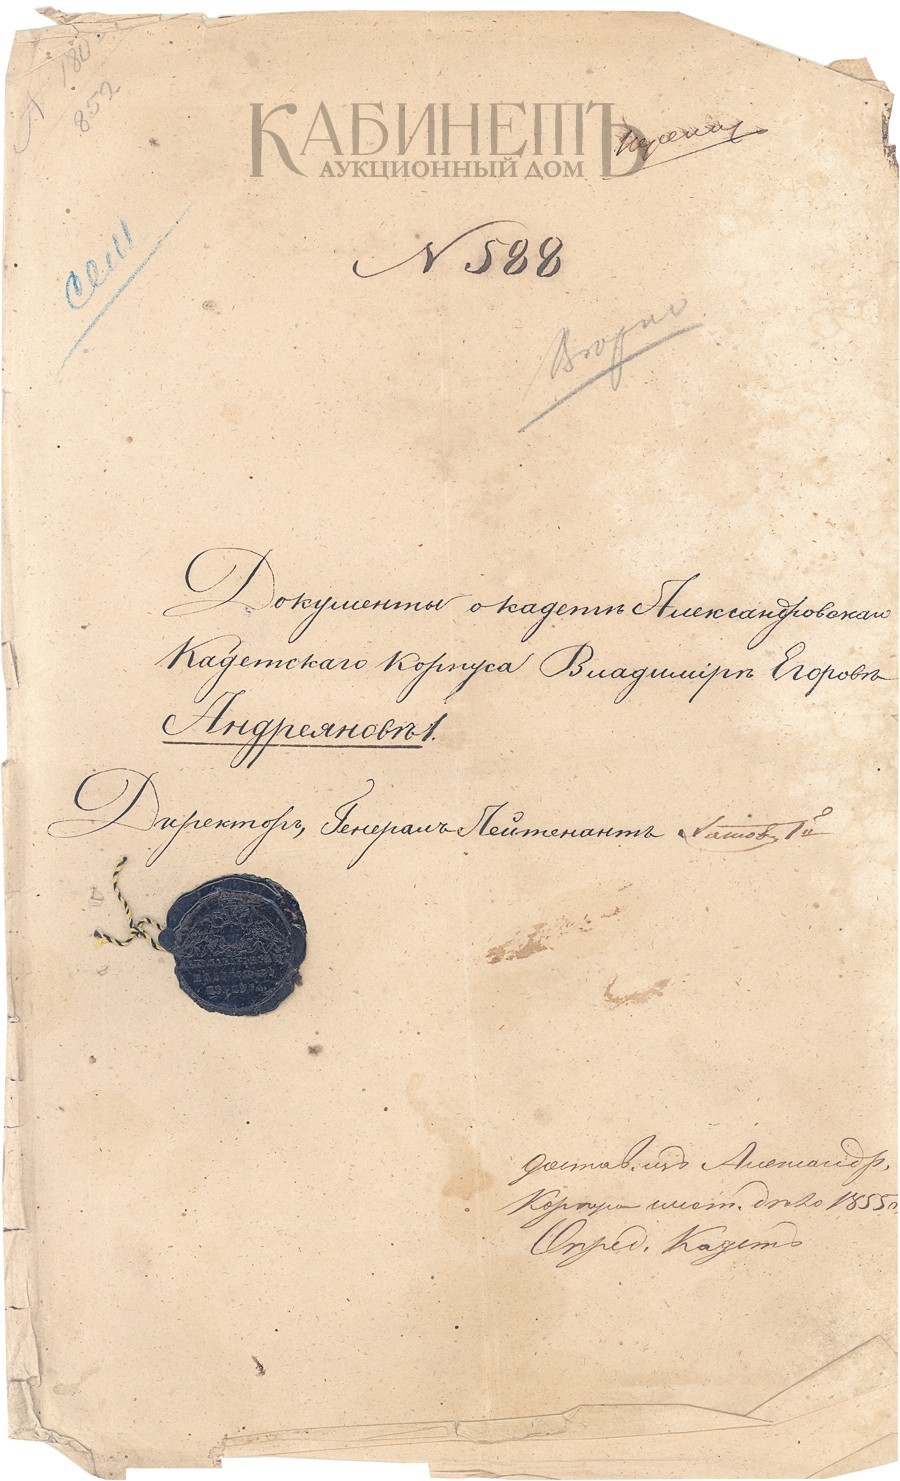 N 180
852
КАБИНЕТЪ
АУКЦИОННЫЙ ДОМ
N 588
Документы о кадетѣ Александровскаго
Кадетскаго Корпуса Владимірѣ Егоровѣ
Андреяновѣ 1.
Директоръ, Генералъ Лейтенантъ 1й
достав. изъ Александр.
Корпуса дѣло 1855 г.
Опред. Кадетъ